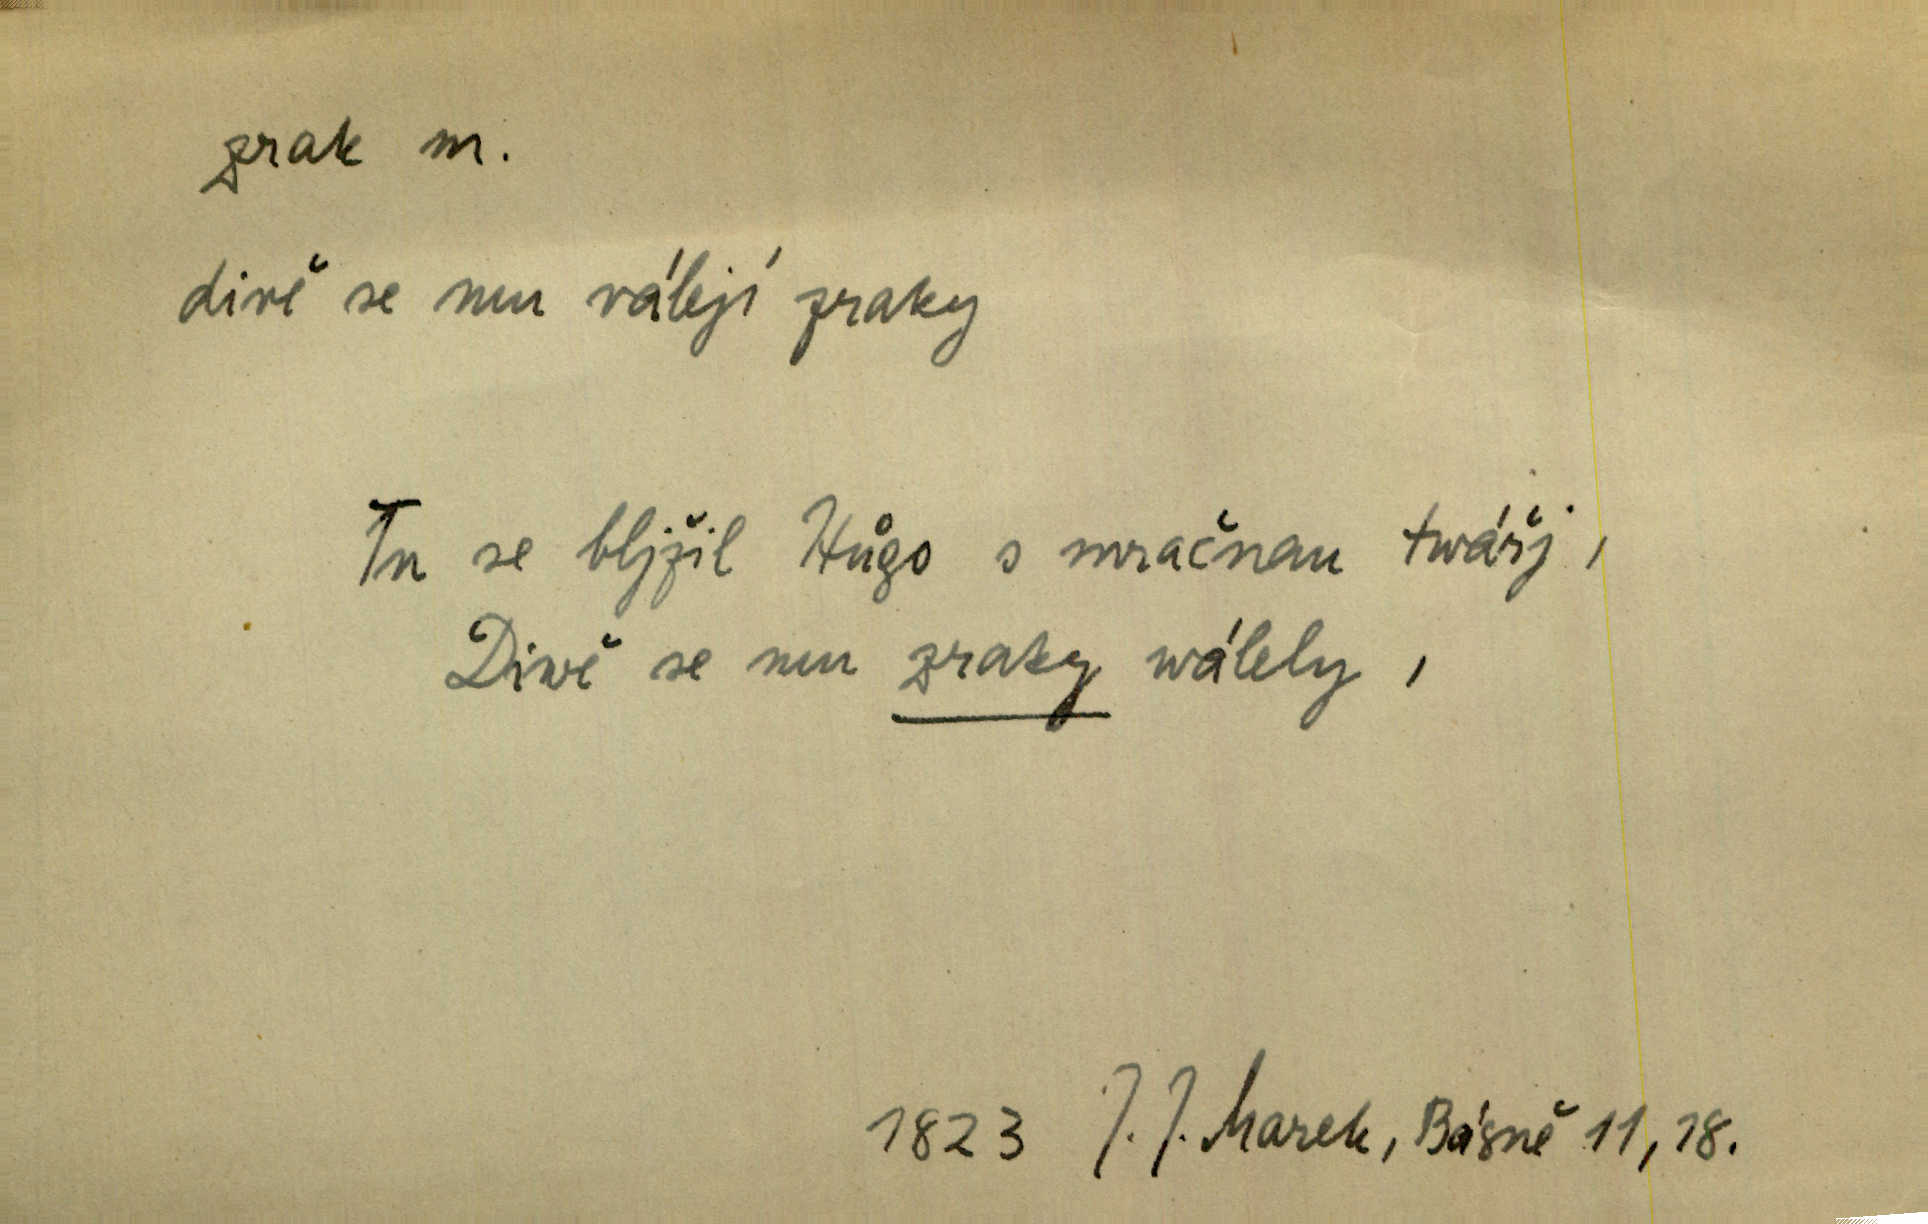 zrak m.
divě se mu válejí zraky
Tu se bljžil Hůgo s mračnau twářj,
Diwě se mu zraky wálely,
1823 J. J. Marek, Básně 11, 18.